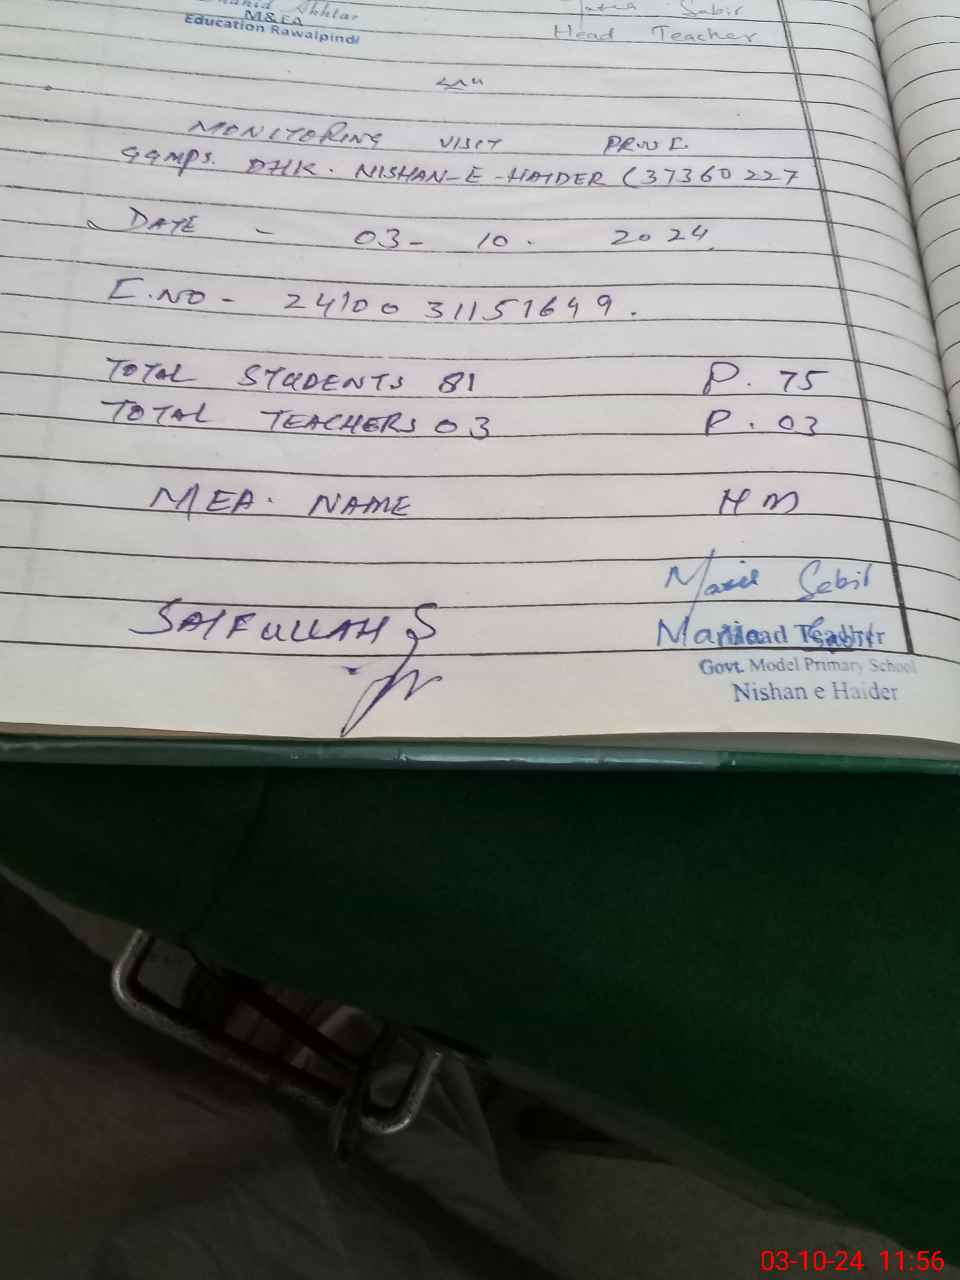 Akhtar
M&EA
Education Rawalpindi
Sabir
Head Teacher
MONITORING VISIT
GGMPS. DHK. NISHAN-E-HAIDER (37360227
DATE - 03- 10. 2024.
E.NO - 2410031151649.
TOTAL STUDENTS 81 P. 75
TOTAL TEACHERS 03 P. 03
MEA. NAME HM
SAIFULLAH S
Head Teacher
Govt. Model Primary School
Nishan e Haider
03-10-24 11:56